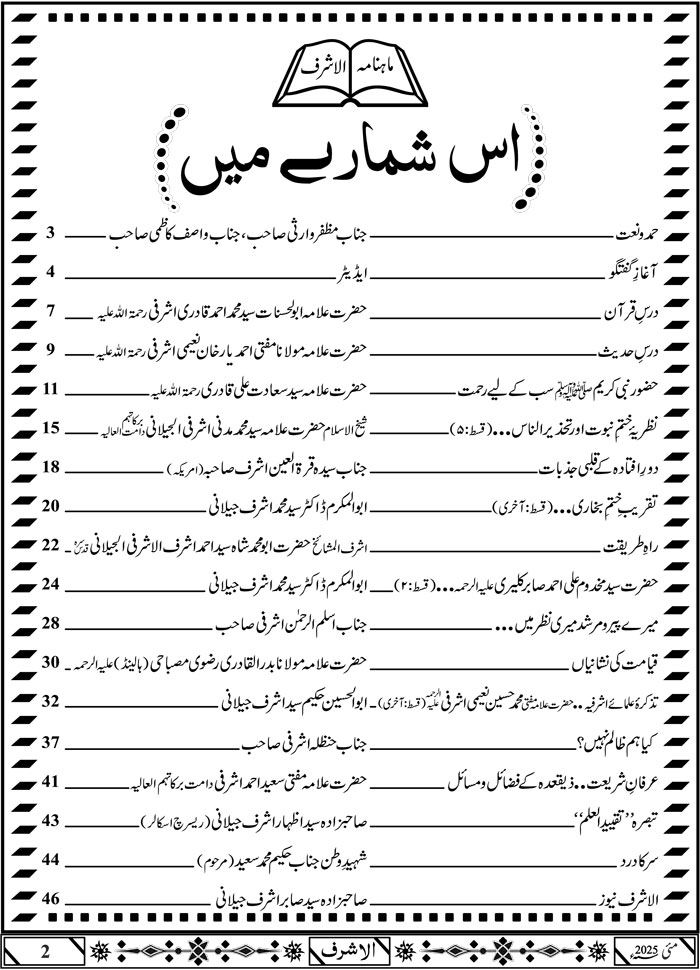 ماہنامہ الاشرف
اس شمارے میں
حمد و نعت جناب مظفر وارثی صاحب، جناب واصف کاظمی صاحب 3
آغازِ گفتگو ایڈیٹر 4
درسِ قرآن حضرت علامہ ابوالحسنات سید محمد احمد قادری اشرفی رحمۃ اللہ علیہ 7
درسِ حدیث حضرت علامہ مولانا مفتی احمد یار خان نعیمی اشرفی رحمۃ اللہ علیہ 9
حضور نبی کریم ﷺ سب کے لیے رحمت حضرت علامہ سید سعادت علی قادری رحمۃ اللہ علیہ 11
نظریۂ ختمِ نبوت اور تحذیر الناس... (قسط:۵) شیخ الاسلام حضرت علامہ سید محمد مدنی اشرفی الجیلانی دامت برکاتہم العالیہ 15
دور افتادہ کے قلبی جذبات جناب سیدہ قرۃ العین اشرف صاحبہ (امریکہ) 18
تقریب ختمِ بخاری... (قسط: آخری) ابوالمکرم ڈاکٹر سید محمد اشرف جیلانی 20
راہِ طریقت اشرف المشائخ حضرت ابو محمد شاہ سید احمد اشرف الاشرفی الجیلانی قدس سرہٗ 22
حضرت سید مخدوم علی احمد صابر کلیری علیہ الرحمہ... (قسط:۲) ابوالمکرم ڈاکٹر سید محمد اشرف جیلانی 24
میرے پیر و مرشد میری نظر میں... جناب اسلم الرحمٰن اشرفی صاحب 28
قیامت کی نشانیاں حضرت علامہ مولانا بدر القادری رضوی مصباحی (ہالینڈ) علیہ الرحمہ 30
تذکرۂ علمائے اشرفیہ.. حضرت علامہ مفتی محمد حسین نعیمی اشرفی علیہ الرحمہ (قسط: آخری) ابوالحسین حکیم سید اشرف جیلانی 32
کیا ہم ظالم نہیں؟ جناب حنظلہ اشرفی صاحب 37
عرفانِ شریعت.. ذیقعدہ کے فضائل و مسائل حضرت علامہ مفتی سعید احمد اشرفی دامت برکاتہم العالیہ 41
تبصرہ ”تقیید العلم“ صاحبزادہ سید اظہار اشرف جیلانی (ریسرچ اسکالر) 43
سر کا درد شہیدِ وطن جناب حکیم محمد سعید (مرحوم) 44
الاشرف نیوز صاحبزادہ سید صابر اشرف جیلانی 46
مئی 2025ء الاشرف 2